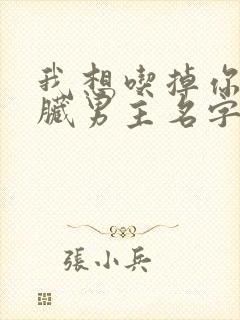 我想喫掉你
臟男主名字
張小兵